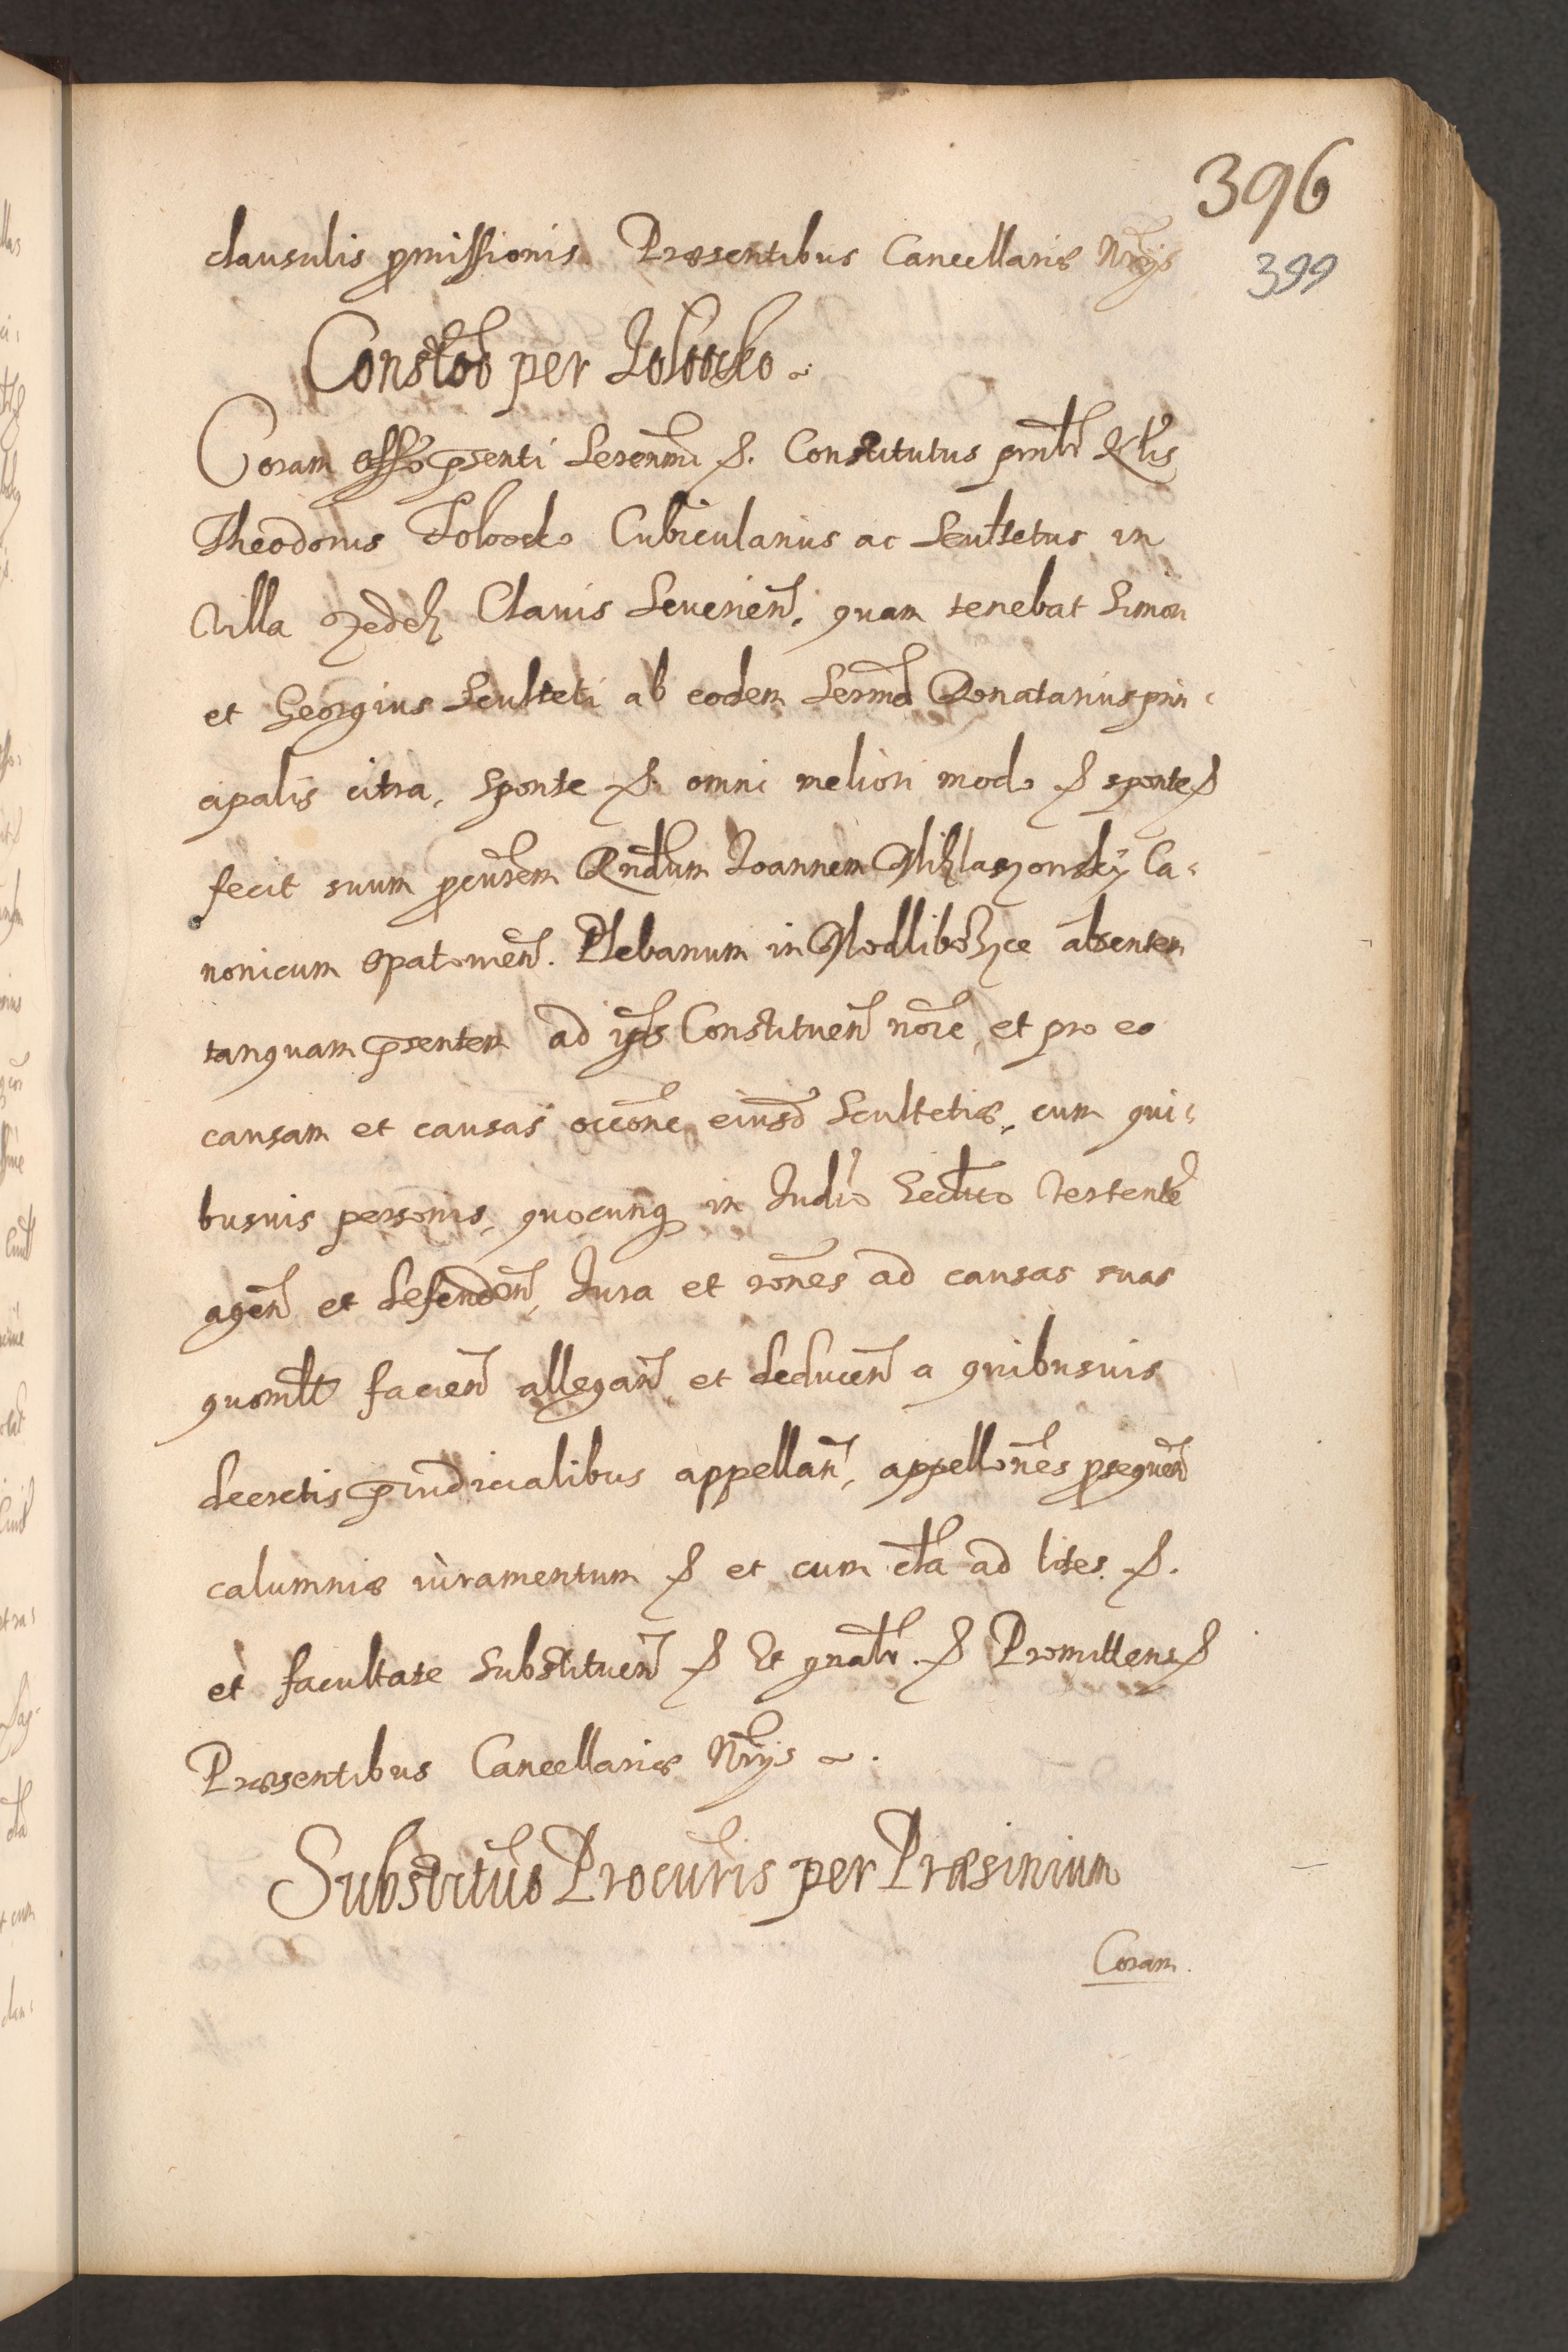 396
clausulis pmissionis. Præsentibus Cancellariæ Nrijs
399
Constöo per Toloczko
Coram offo psenti Serenmi &. Constitutus psnltr
Theodorus Toloczko Cubicularius ac Scultetus in
Villa Clauis Seuerien, quam tenebat Simon
et Georgius Sculteti ab eodem Sermo Donatarius prin-
cipalis citra, sponte &. omni meliori modo & sponte &
fecit suum pcurem Rndum Joannem Ca-
nonicum Opatouien. Plebanum in Modlibozyce absentem
tanquam psentem ad ipsis Constituen noie, et pro eo
causam et causas occone eiusd Scultetiæ, cum qui-
busuis personis, quocunq in Judio Vertente
agen et defenden, Jura et rones ad causas suas
quomlt facien allegan et deducen a quibusuis
decretis piudicialibus appellan, appellones psequen
calumniæ iuramentum & et cum cla ad lites &.
et facultate substituen & Et gnaltr. & Promittens &
Præsentibus Cancellariæ Nrijs
Substituo Procuris per Præsinium
Coram.